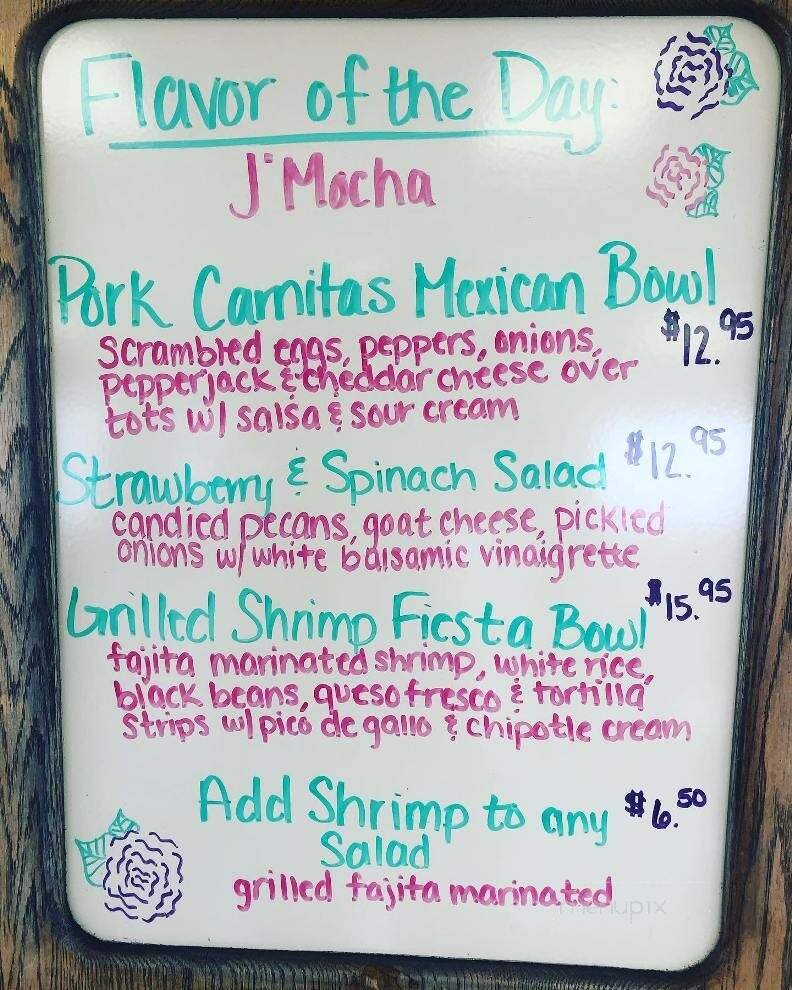 Flavor of the Day:
J'Mocha
Pork Carnitas Mexican Bowl
$12.95
Scrambled eggs, peppers, onions,
pepperjack & cheddar cheese over
tots w/ salsa & sour cream
Strawberry & Spinach Salad $12.95
candied pecans, goat cheese, pickled
onions w/ white balsamic vinaigrette
Grilled Shrimp Fiesta Bowl $15.95
fajita marinated shrimp, white rice,
black beans, queso fresco & tortilla
strips w/ pico de gallo & chipotle cream
Add Shrimp to any $6.50
Salad
grilled fajita marinated
menupix